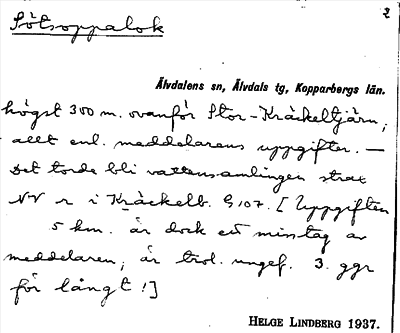 2
Sötsoppalok
Älvdalens sn, Älvdals tg, Kopparbergs län.
högst 300 m. ovanför Stor-Kräckeltjärn,
allt enl. meddelarens uppgifter. —
Det torde bli vattensamlingen strax
NV r i Kräckelb. G 107. [Uppgiften
5 km. är dock ett misstag av
meddelaren, är trol. ungef. 3. ggr
för långt!]
HELGE LINDBERG 1937.